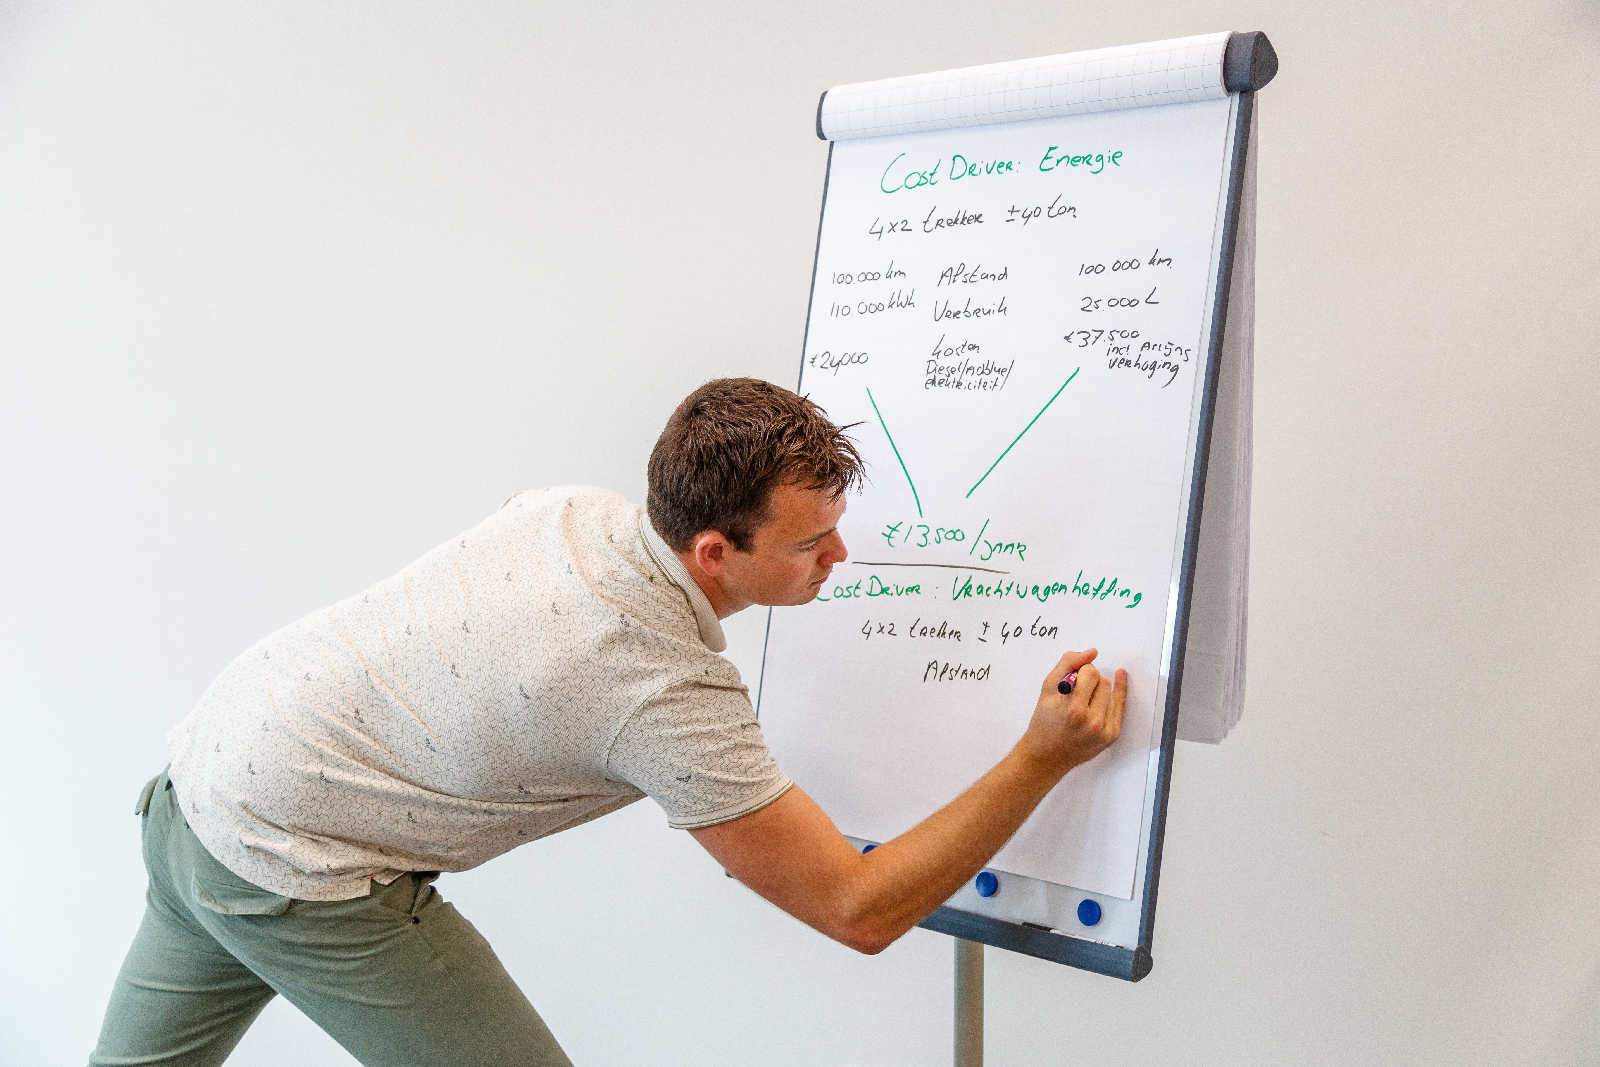 Cost Driver: Energie
4x2 trekker ± 40 ton
100.000 km Afstand 100.000 km
110.000 kWh Verbruik 25.000 L
€24.000 Kosten €37.500
Diesel/Adblue/ incl Accijns
elektriciteit/ verhoging
€13.500/jaar
Cost Driver: Vrachtwagenheffing
4x2 trekker ± 40 ton
Afstand